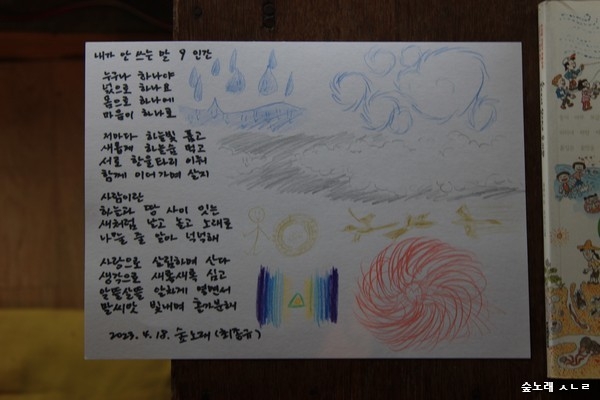 내가 안 쓰는 말 9 인간
누구나 하나야
넋으로 하나요
몸으로 하나에
마음이 하나로
저마다 하늘빛 품고
새롭게 하늘숨 먹고
서로 한울타리 이뤄
함께 이어가며 살지
사람이란
하늘과 땅 사이 잇는
새처럼 날고 놀고 노래로
나눌 줄 알아 넉넉해
사랑으로 살림하며 산다
생각으로 새록새록 심고
알뜰살뜰 알차게 열면서
말씨앗 빛내며 흐뭇해
2023. 4. 18. 숲노래 (최종규)
숲노래 ㅅㄴㄹ